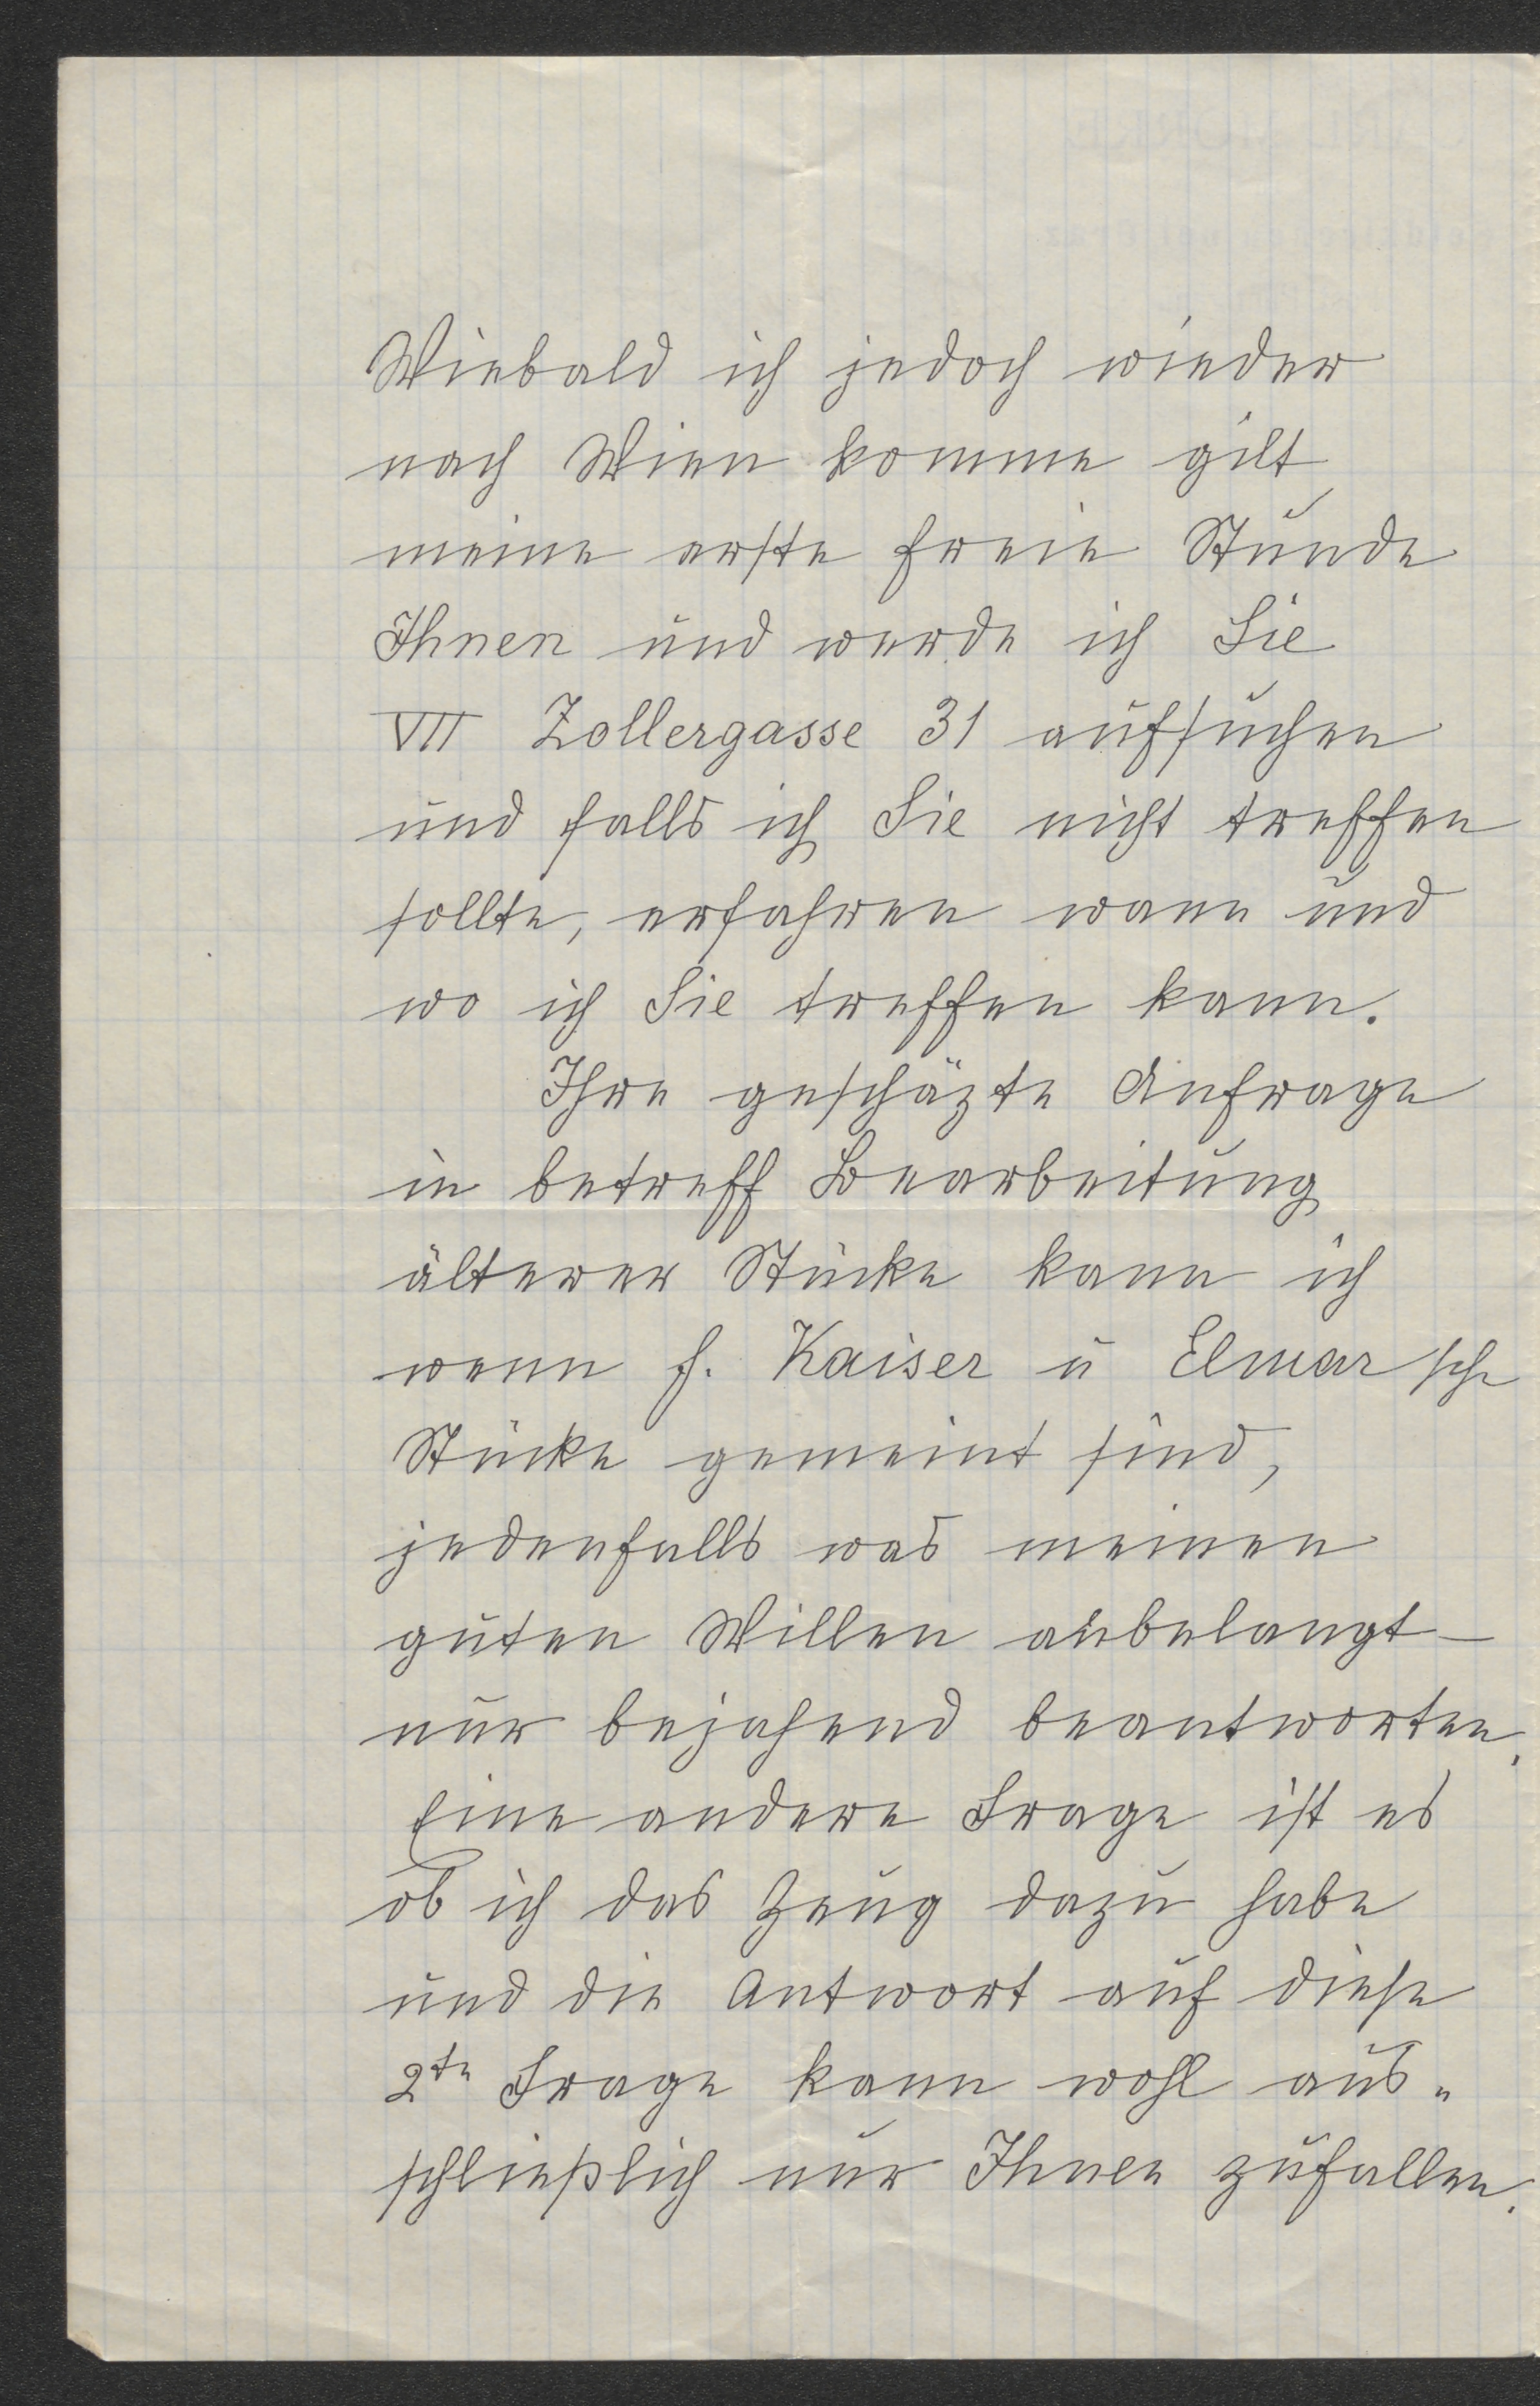 Wiebald ich jedoch wieder
nach Wien komme gilt
meine erste freie Stunde
Ihnen und werde ich Sie
VII Zollergasse 31 aufsuchen
und falls ich Sie nicht treffen
sollte, erfahren wann und
wo ich Sie treffen kann.
Ihre geschäzte Anfrage
in betreff Bearbeitung
älterer Stücke kann ich
wenn f. Kaiser u Elmar sche
Stücke gemeint sind,
jedenfalls was meinen
guten Willen anbelangt –
nur bejahend beantworten.
Eine andere Frage ist es
ob ich das Zeug dazu habe
und die Antwort auf diese
2te Frage kann wohl aus„
schließlich nur Ihnen zufallen.